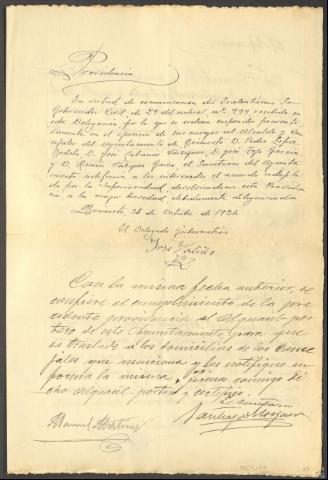 Providencia
En virtud de comunicación del Excelentísimo Sr.
Gobernador Civil, de 29 del actual nº 999 recibida en
esta Delegación por la que se ordena suspender
en el ejercicio de sus cargos al Alcalde y
del Ayuntamiento de Boimorto D. Pedro López
D. José Cabanas Vázquez, D. José García
y D. Ramón Vázquez el Secretario del
notificará a los interesados el acuerdo
por la Superioridad, devolviéndome esta Providen
cia a la mayor brevedad debidamente diligenciada
Boimorto 30 de Octubre de 1934
El Delegado Gubernativo
José
Con la misma fecha anterior, se
confiere el cumplimiento de la pre
cedente providencia al Alguacil-por
tero de este Ayuntamiento, para que
se traslade a los domicilios de los Conce
jales que menciona y les notifique en
forma la misma, firma conmigo di
cho alguacil-portero y certifico.
Manuel Martínez
Santiago